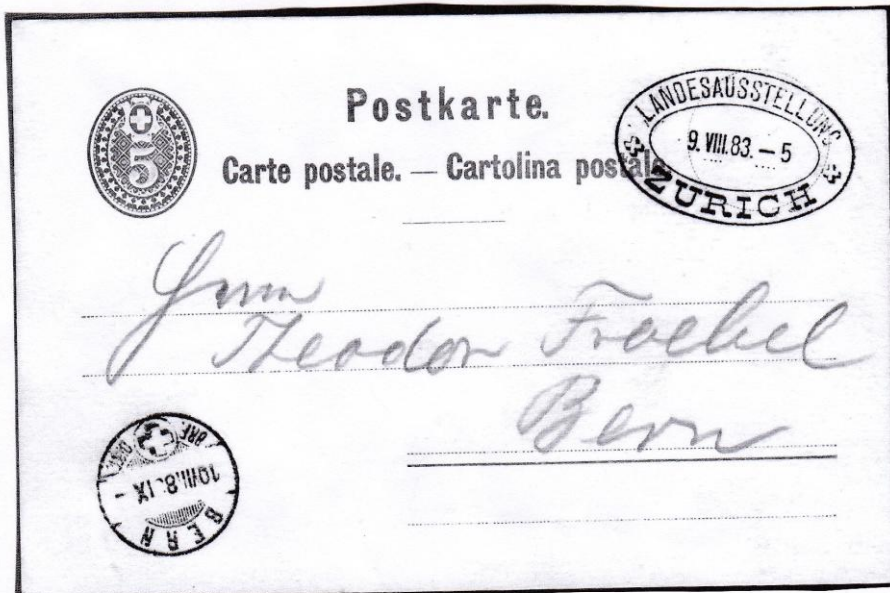 5
Postkarte.
Carte postale. — Cartolina postale
LANDESAUSSTELLUNG
9. VIII. 83. – 5
ZURICH
Herrn
Theodor Froebel
Bern
BRF.
10 VIII. 8 IX –
BERN